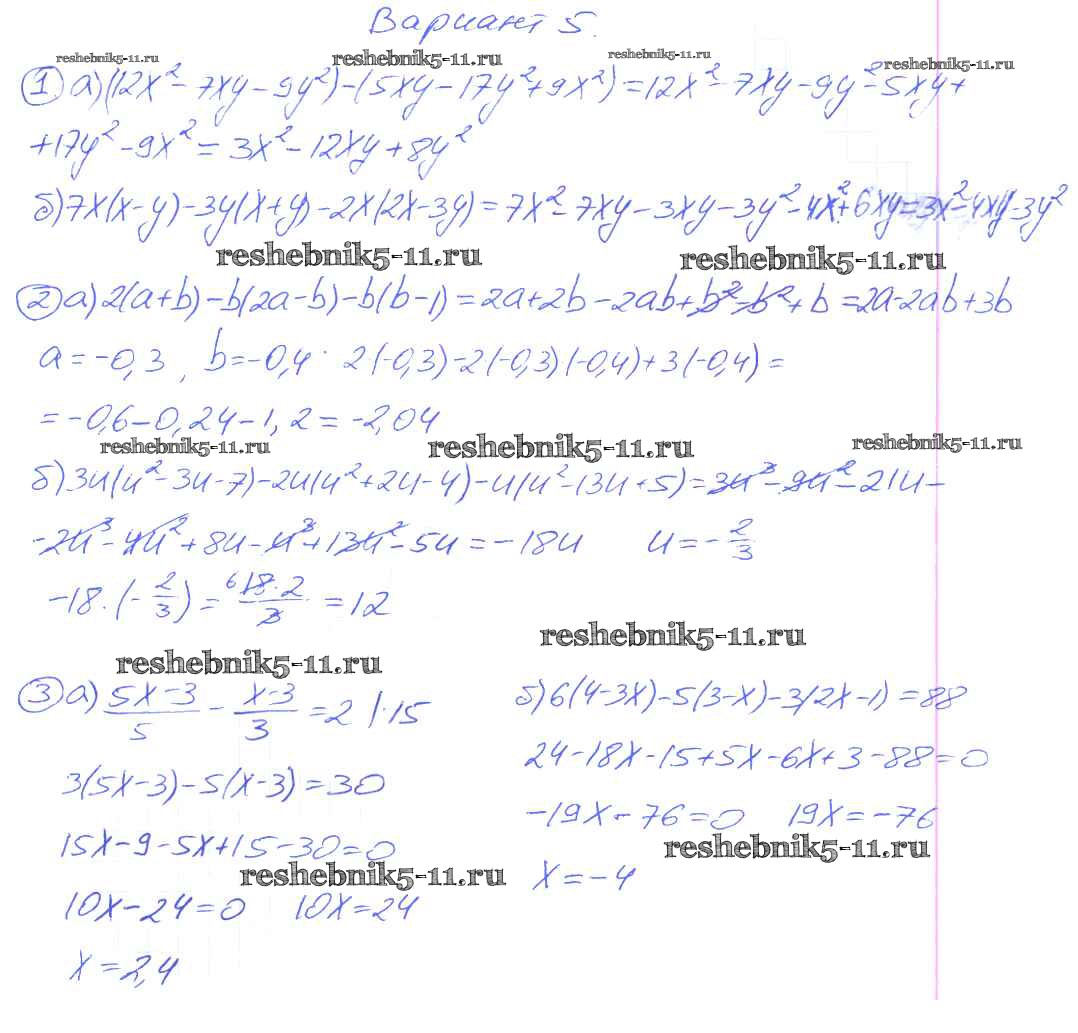 Вариант 5.
reshebnik5-11.ru reshebnik5-11.ru reshebnik5-11.ru reshebnik5-11.ru
① а) (12x² - 7xy - 9y²) - (5xy - 17y² + 9x²) = 12x² - 7xy - 9y² - 5xy +
+ 17y² - 9x² = 3x² - 12xy + 8y²
б) 7x(x-y) - 3y(x+y) - 2x(2x-3y) = 7x² - 7xy - 3xy - 3y² - 4x² + 6xy = 3x² - 4xy - 3y²
reshebnik5-11.ru reshebnik5-11.ru
② а) 2(a+b) - b(2a-b) - b(b-1) = 2a + 2b - 2ab + b² - b² + b = 2a - 2ab + 3b
a = -0,3 , b = -0,4 · 2(-0,3) - 2(-0,3)(-0,4) + 3(-0,4) =
= -0,6 - 0,24 - 1,2 = -2,04
reshebnik5-11.ru reshebnik5-11.ru reshebnik5-11.ru
б) 3u(u² - 3u - 7) - 2u(u² + 2u - 4) - u(u² - 13u + 5) = 3u³ - 9u² - 21u -
- 2u³ - 4u² + 8u - u³ + 13u² - 5u = -18u u = -2/3
-18 · (-2/3) = 6 18·2/3 = 12
reshebnik5-11.ru reshebnik5-11.ru
③ а) (5x-3)/5 - (x-3)/3 = 2 | ·15
3(5x-3) - 5(x-3) = 30
15x - 9 - 5x + 15 - 30 = 0
reshebnik5-11.ru
10x - 24 = 0 10x = 24
x = 2,4
б) 6(4-3x) - 5(3-x) - 3(2x-1) = 88
24 - 18x - 15 + 5x - 6x + 3 - 88 = 0
-19x - 76 = 0 19x = -76
reshebnik5-11.ru
x = -4